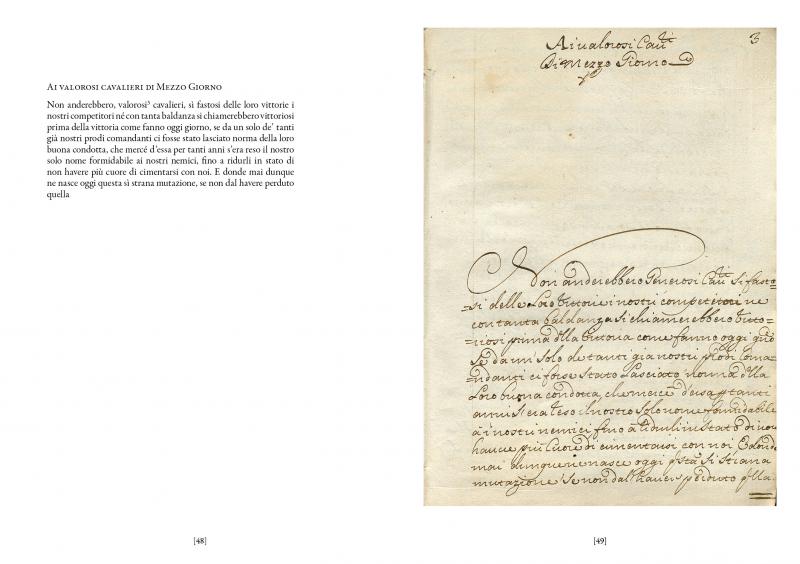 Ai valorosi cavalieri di Mezzo Giorno
Non anderebbero, valorosi³ cavalieri, sì fastosi delle loro vittorie i
nostri competitori né con tanta baldanza si chiamerebbero vittoriosi
prima della vittoria come fanno oggi giorno, se da un solo de’ tanti
già nostri prodi comandanti ci fosse stato lasciato norma della loro
buona condotta, che mercé d’essa per tanti anni s’era reso il nostro
solo nome formidabile ai nostri nemici, fino a ridurli in stato di
non havere più cuore di cimentarsi con noi. E donde mai dunque
ne nasce oggi questa sì strana mutazione, se non dal havere perduto
quella
[48]
3
Ai valorosi Cau.ri
Di Mezzo Giorno
Non anderebbero Generosi Cau.ri si fasto=
=si delle Loro Vittorie i nostri competitori ne
con tanta baldanza si chiamerebbero vitto=
=riosi prima d'lla vittoria come fanno oggi
Se da un solo de tanti gia nostri prodi Coma=
=ndanti ci fosse stato Lasciato norma d'lla
Loro buona condotta, che mercè d'essa p tanti
anni s'era reso il nostro solo nome formidabile
a i nostri nemici fino a ridurli in stato di non
hauere più Cuore di cimentarsi con noi E donde
mai dunque ne nasce oggi si strana
mutazione se non dal hauere perduto
[49]